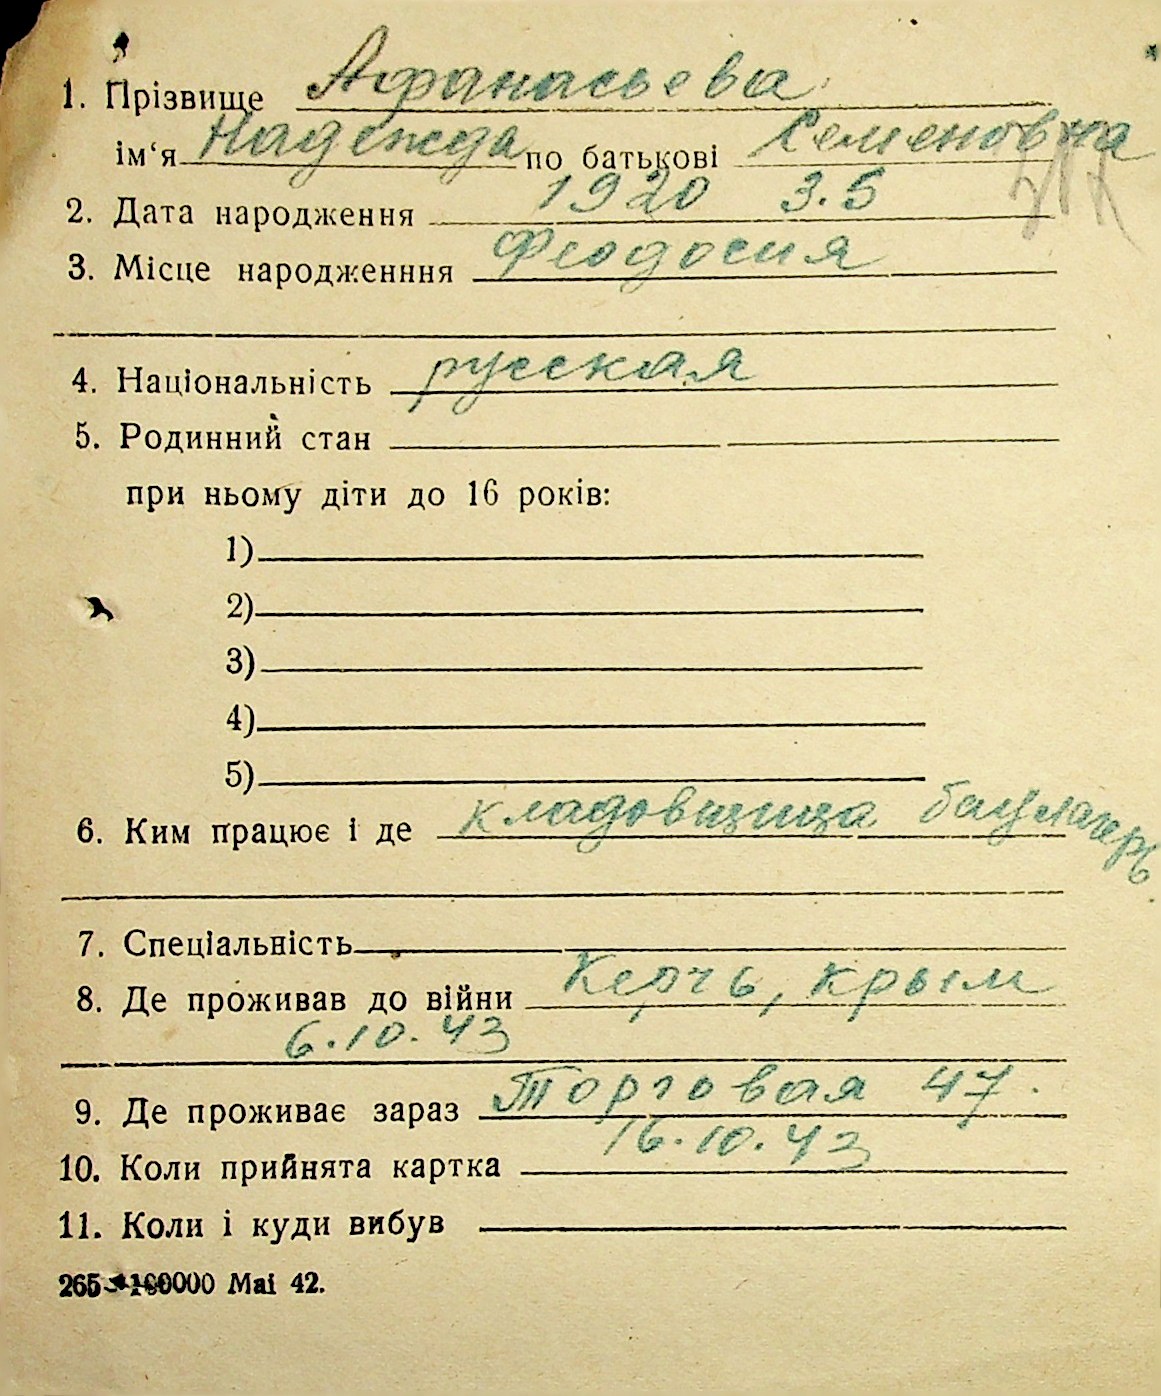 1. Прізвище Афанасьева
ім‘я Надежда по батькові Семеновна
2. Дата народження 1920 3.5
3. Місце народженння Феодосия
4. Національність русская
5. Родинний стан
при ньому діти до 16 років:
1)
2)
3)
4)
5)
6. Ким працює і де кладовщица
7. Спеціальність
8. Де проживав до війни Керчь, Крым
6.10.43
9. Де проживає зараз Торговая 47.
10. Коли прийнята картка 16.10.43
11. Коли і куди вибув
265 Mai 42.